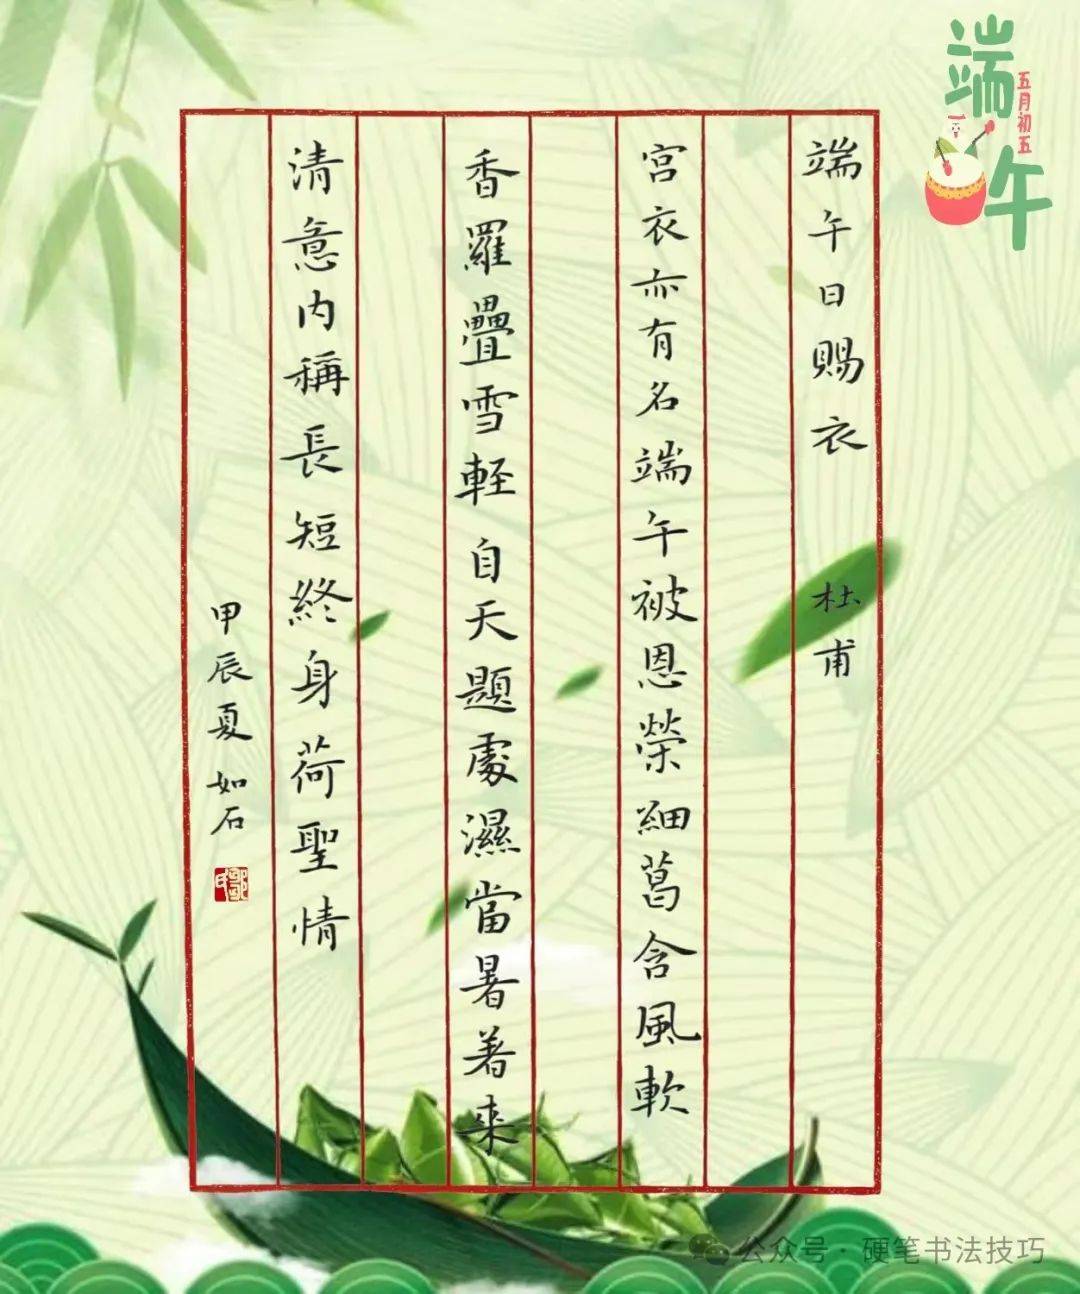 端午
五月初五
端午日賜衣 杜甫
宮衣亦有名端午被恩榮細葛含風軟
香羅疊雪輕自天題處濕當暑著來
清意內稱長短終身荷聖情
甲辰夏如石
鄒氏
公众号·硬笔书法技巧